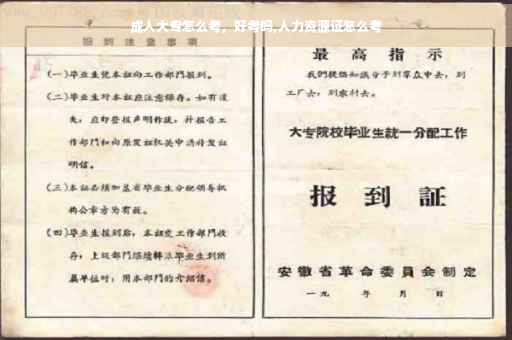 成人大专怎么考，好考吗,人力资源证怎么考
报到注意事项
(一)毕业生凭本证向工作部門报到。
(二)毕业生对本证应注意保存。如有遗
失，应即登报声明作废，并报告工
作部門和向原发证机关申請补发证
明信。
(三)本证必须加盖省毕业生分配领导机
构公章方为有效。
(四)毕业生报到后，本证交工作部門收
存；上级部門
单位时，用本部門的介绍信。
最高指示
我們提倡知识分子到羣众中去，到
工厂去，到农村去。
大专院校毕业生統一分配工作
报到证
安徽省革命委員会制定
一九 年 月 日